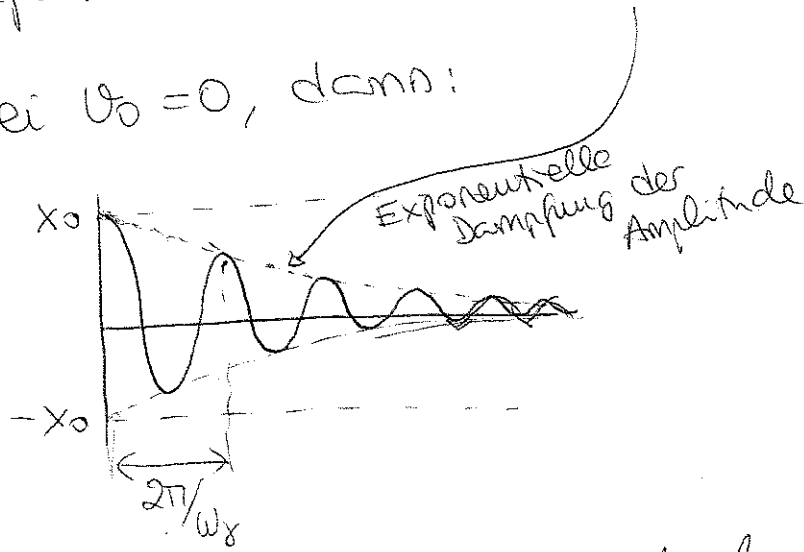 ei v₀ = 0, dann:
x₀
Exponentielle
Dämpfung der
Amplitude
-x₀
2π/ωγ